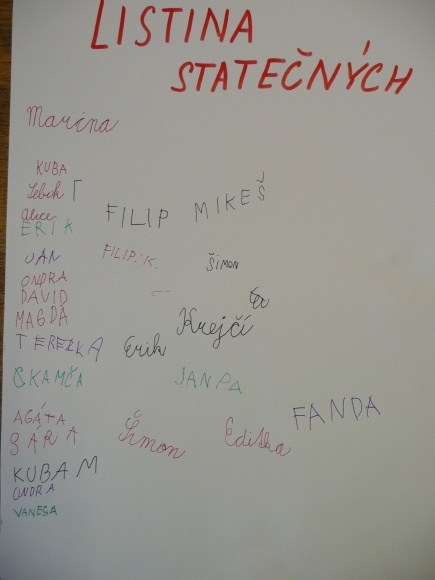 LISTINA
STATEČNÝCH
Marina
KUBA
alice
FILIP MIKEŠ
ERIK
JAN
FILIP.K.
ŠIMON
ONDRA
DAVID
MAGDA
Krejčí
TEREZKA
Erik
KAMČA
JANPA
AGÁTA
FANDA
SÁRA
Šimon
Editka
KUBA M
ONDRA
VANESA